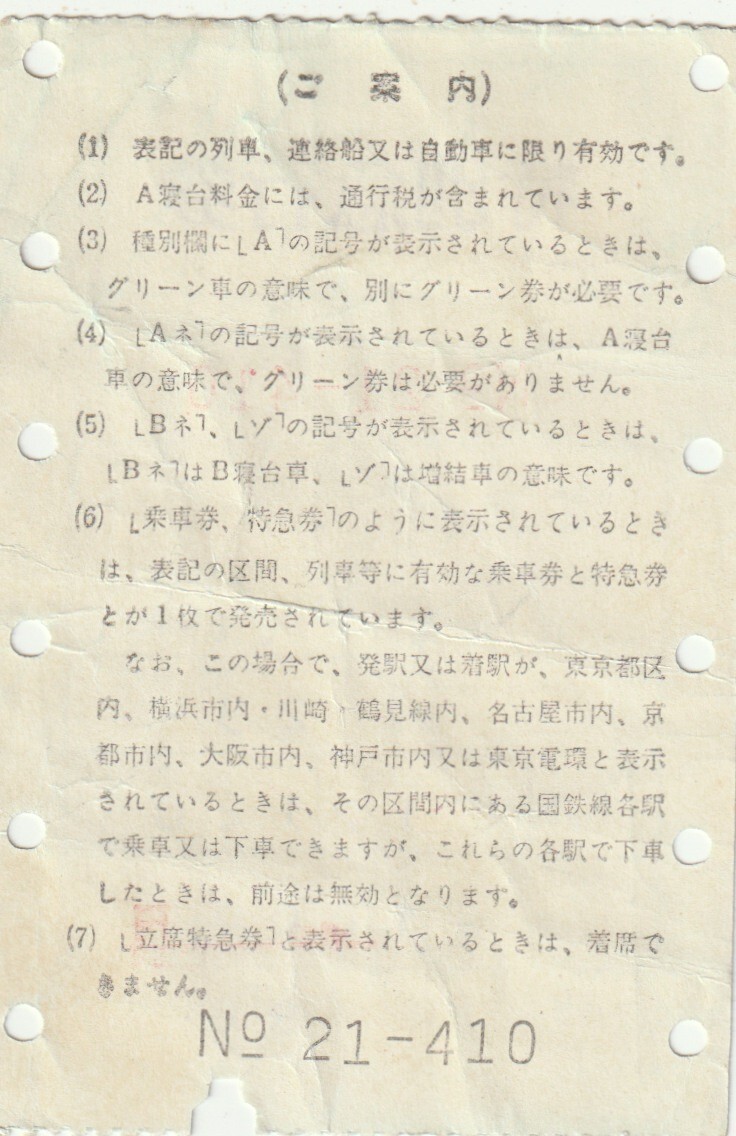 （ご案内）
(1) 表記の列車、連絡船又は自動車に限り有効です。
(2) A寝台料金には、通行税が含まれています。
(3) 種別欄に「A」の記号が表示されているときは、
グリーン車の意味で、別にグリーン券が必要です。
(4) 「Aネ」の記号が表示されているときは、A寝台
車の意味で、グリーン券は必要がありません。
(5) 「Bネ」、「ゾ」の記号が表示されているときは、
「Bネ」はB寝台車、「ゾ」は増結車の意味です。
(6) 「乗車券、特急券」のように表示されているとき
は、表記の区間、列車等に有効な乗車券と特急券
とが1枚で発売されています。
なお、この場合で、発駅又は着駅が、東京都区
内、横浜市内・川崎・鶴見線内、名古屋市内、京
都市内、大阪市内、神戸市内又は東京電環と表示
されているときは、その区間内にある国鉄線各駅
で乗車又は下車できますが、これらの各駅で下車
したときは、前途は無効となります。
(7) 「立席特急券」と表示されているときは、着席で
きません。
№ 21-410